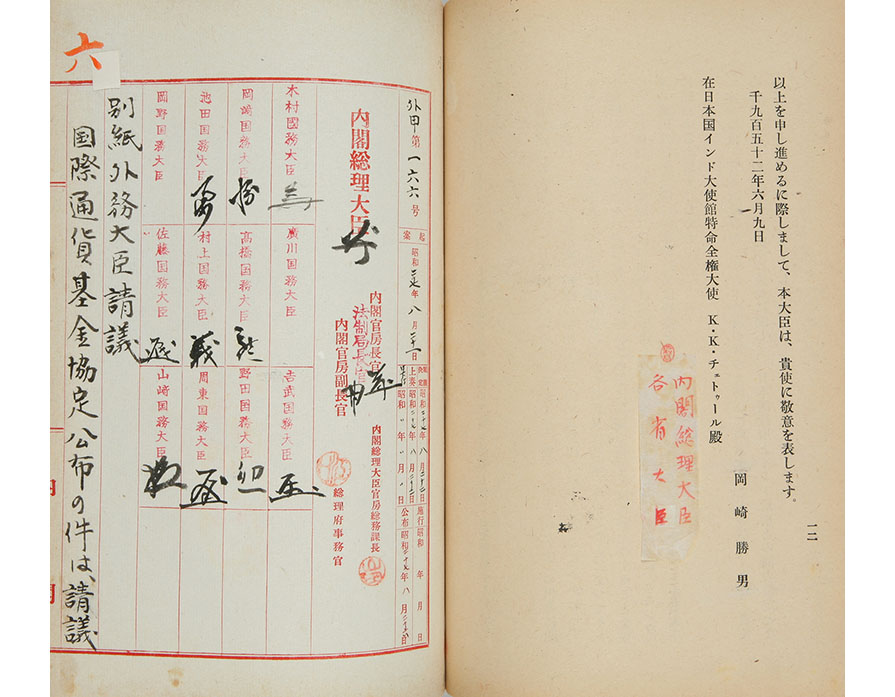 以上を申し進めるに際しまして、本大臣は、貴使に敬意を表します。
千九百五十二年六月九日
岡崎勝男
在日本国インド大使館特命全権大使 K・K・チェトゥール殿
内閣総理大臣
各省大臣
一二
六
外甲第一六六号
起案 昭和 年八月 日
上奏 昭和二十七年八月 日
施行 昭和 年 月 日
公布 昭和二十七年八月 日
内閣総理大臣
内閣官房長官
法制局長官
内閣官房副長官
内閣総理大臣官房総務課長
総理府事務官
木村國務大臣
廣川国務大臣
吉武国務大臣
岡崎国務大臣
高橋国務大臣
野田国務大臣
池田国務大臣
村上国務大臣
周東国務大臣
岡野国務大臣
佐藤国務大臣
山崎国務大臣
別紙外務大臣請議
国際通貨基金協定公布の件は、請議